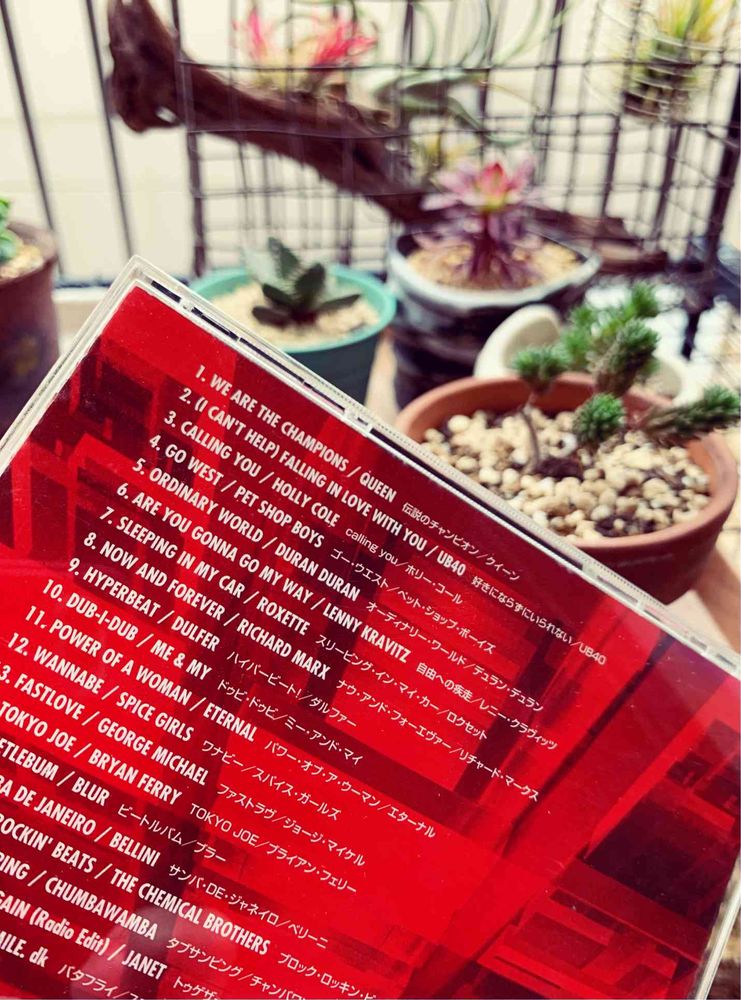 1. WE ARE THE CHAMPIONS / QUEEN 伝説のチャンピオン／クイーン
2. (I CAN'T HELP) FALLING IN LOVE WITH YOU / UB40 好きにならずにいられない／UB40
3. CALLING YOU / HOLLY COLE calling you／ホリー・コール
4. GO WEST / PET SHOP BOYS ゴー・ウエスト／ペット・ショップ・ボーイズ
5. ORDINARY WORLD / DURAN DURAN オーディナリー・ワールド／デュラン・デュラン
6. ARE YOU GONNA GO MY WAY / LENNY KRAVITZ 自由への疾走／レニー・クラヴィッツ
7. SLEEPING IN MY CAR / ROXETTE スリーピング・イン・マイ・カー／ロクセット
8. NOW AND FOREVER / RICHARD MARX ナウ・アンド・フォーエヴァー／リチャード・マークス
9. HYPERBEAT / DULFER ハイパービート!／ダルファー
10. DUB-I-DUB / ME & MY ドゥビ・ドゥビ／ミー・アンド・マイ
11. POWER OF A WOMAN / ETERNAL パワー・オブ・ア・ウーマン／エターナル
12. WANNABE / SPICE GIRLS ワナビー／スパイス・ガールズ
3. FASTLOVE / GEORGE MICHAEL ファストラヴ／ジョージ・マイケル
TOKYO JOE / BRYAN FERRY TOKYO JOE／ブライアン・フェリー
ETLEBUM / BLUR ビートルバム／ブラー
BA DE JANEIRO / BELLINI サンバ・DE・ジャネイロ／ベリーニ
ROCKIN' BEATS / THE CHEMICAL BROTHERS ブロック・ロッキン・ビ
PING / CHUMBAWAMBA タブサンピング／チャンバワ
GAIN (Radio Edit) / JANET トゥゲザ
MILE. dk バタフライ／ス